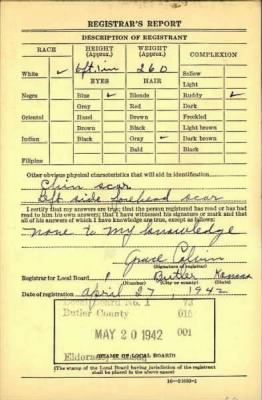 REGISTRAR'S REPORT
DESCRIPTION OF REGISTRANT
RACE
HEIGHT (Approx.)
WEIGHT (Approx.)
COMPLEXION
White ✓
6 ft. 1 in
260
Sallow
EYES
HAIR
Light
Negro
Blue ✓
Blonde
Ruddy ✓
Gray
Red
Dark
Oriental
Hazel
Brown
Freckled
Brown
Black
Light brown
Indian
Black
Gray ✓
Dark brown
Bald
Black
Filipino
Other obvious physical characteristics that will aid in identification
Chin scar
Left side forehead scar
I certify that my answers are true; that the person registered has read or has had
read to him his own answers; that I have witnessed his signature or mark and that
all of his answers of which I have knowledge are true, except as follows:
none to my knowledge
Grace Colvin
(Signature of registrar)
Registrar for Local Board 1 Butler Kansas
(Number) (City or county) (State)
Date of registration april 27, 1942
Local Board No. 1 73
Butler County 015
MAY 20 1942 001
Eldorado, Kansas
(STAMP OF LOCAL BOARD)
(The stamp of the Local Board having jurisdiction of the registrant
shall be placed in the above space)